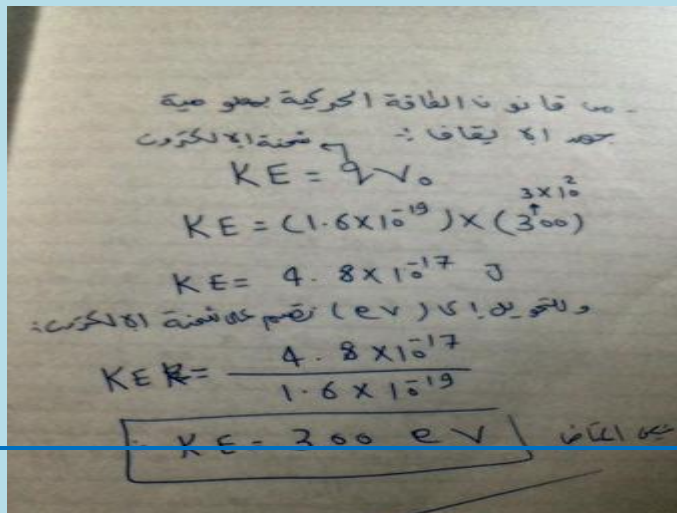 من قانون الطاقة الحركية بمعلومية
جهد الإيقاف :- شحنة الإلكترون
KE = qV₀
3×10²
KE = (1.6×10⁻¹⁹)×(300)
KE = 4.8×10⁻¹⁷ J
وللتحويل إلى (eV) نقسم على شحنة الإلكترون:
KE = 4.8×10⁻¹⁷ / 1.6×10⁻¹⁹
KE = 300 eV